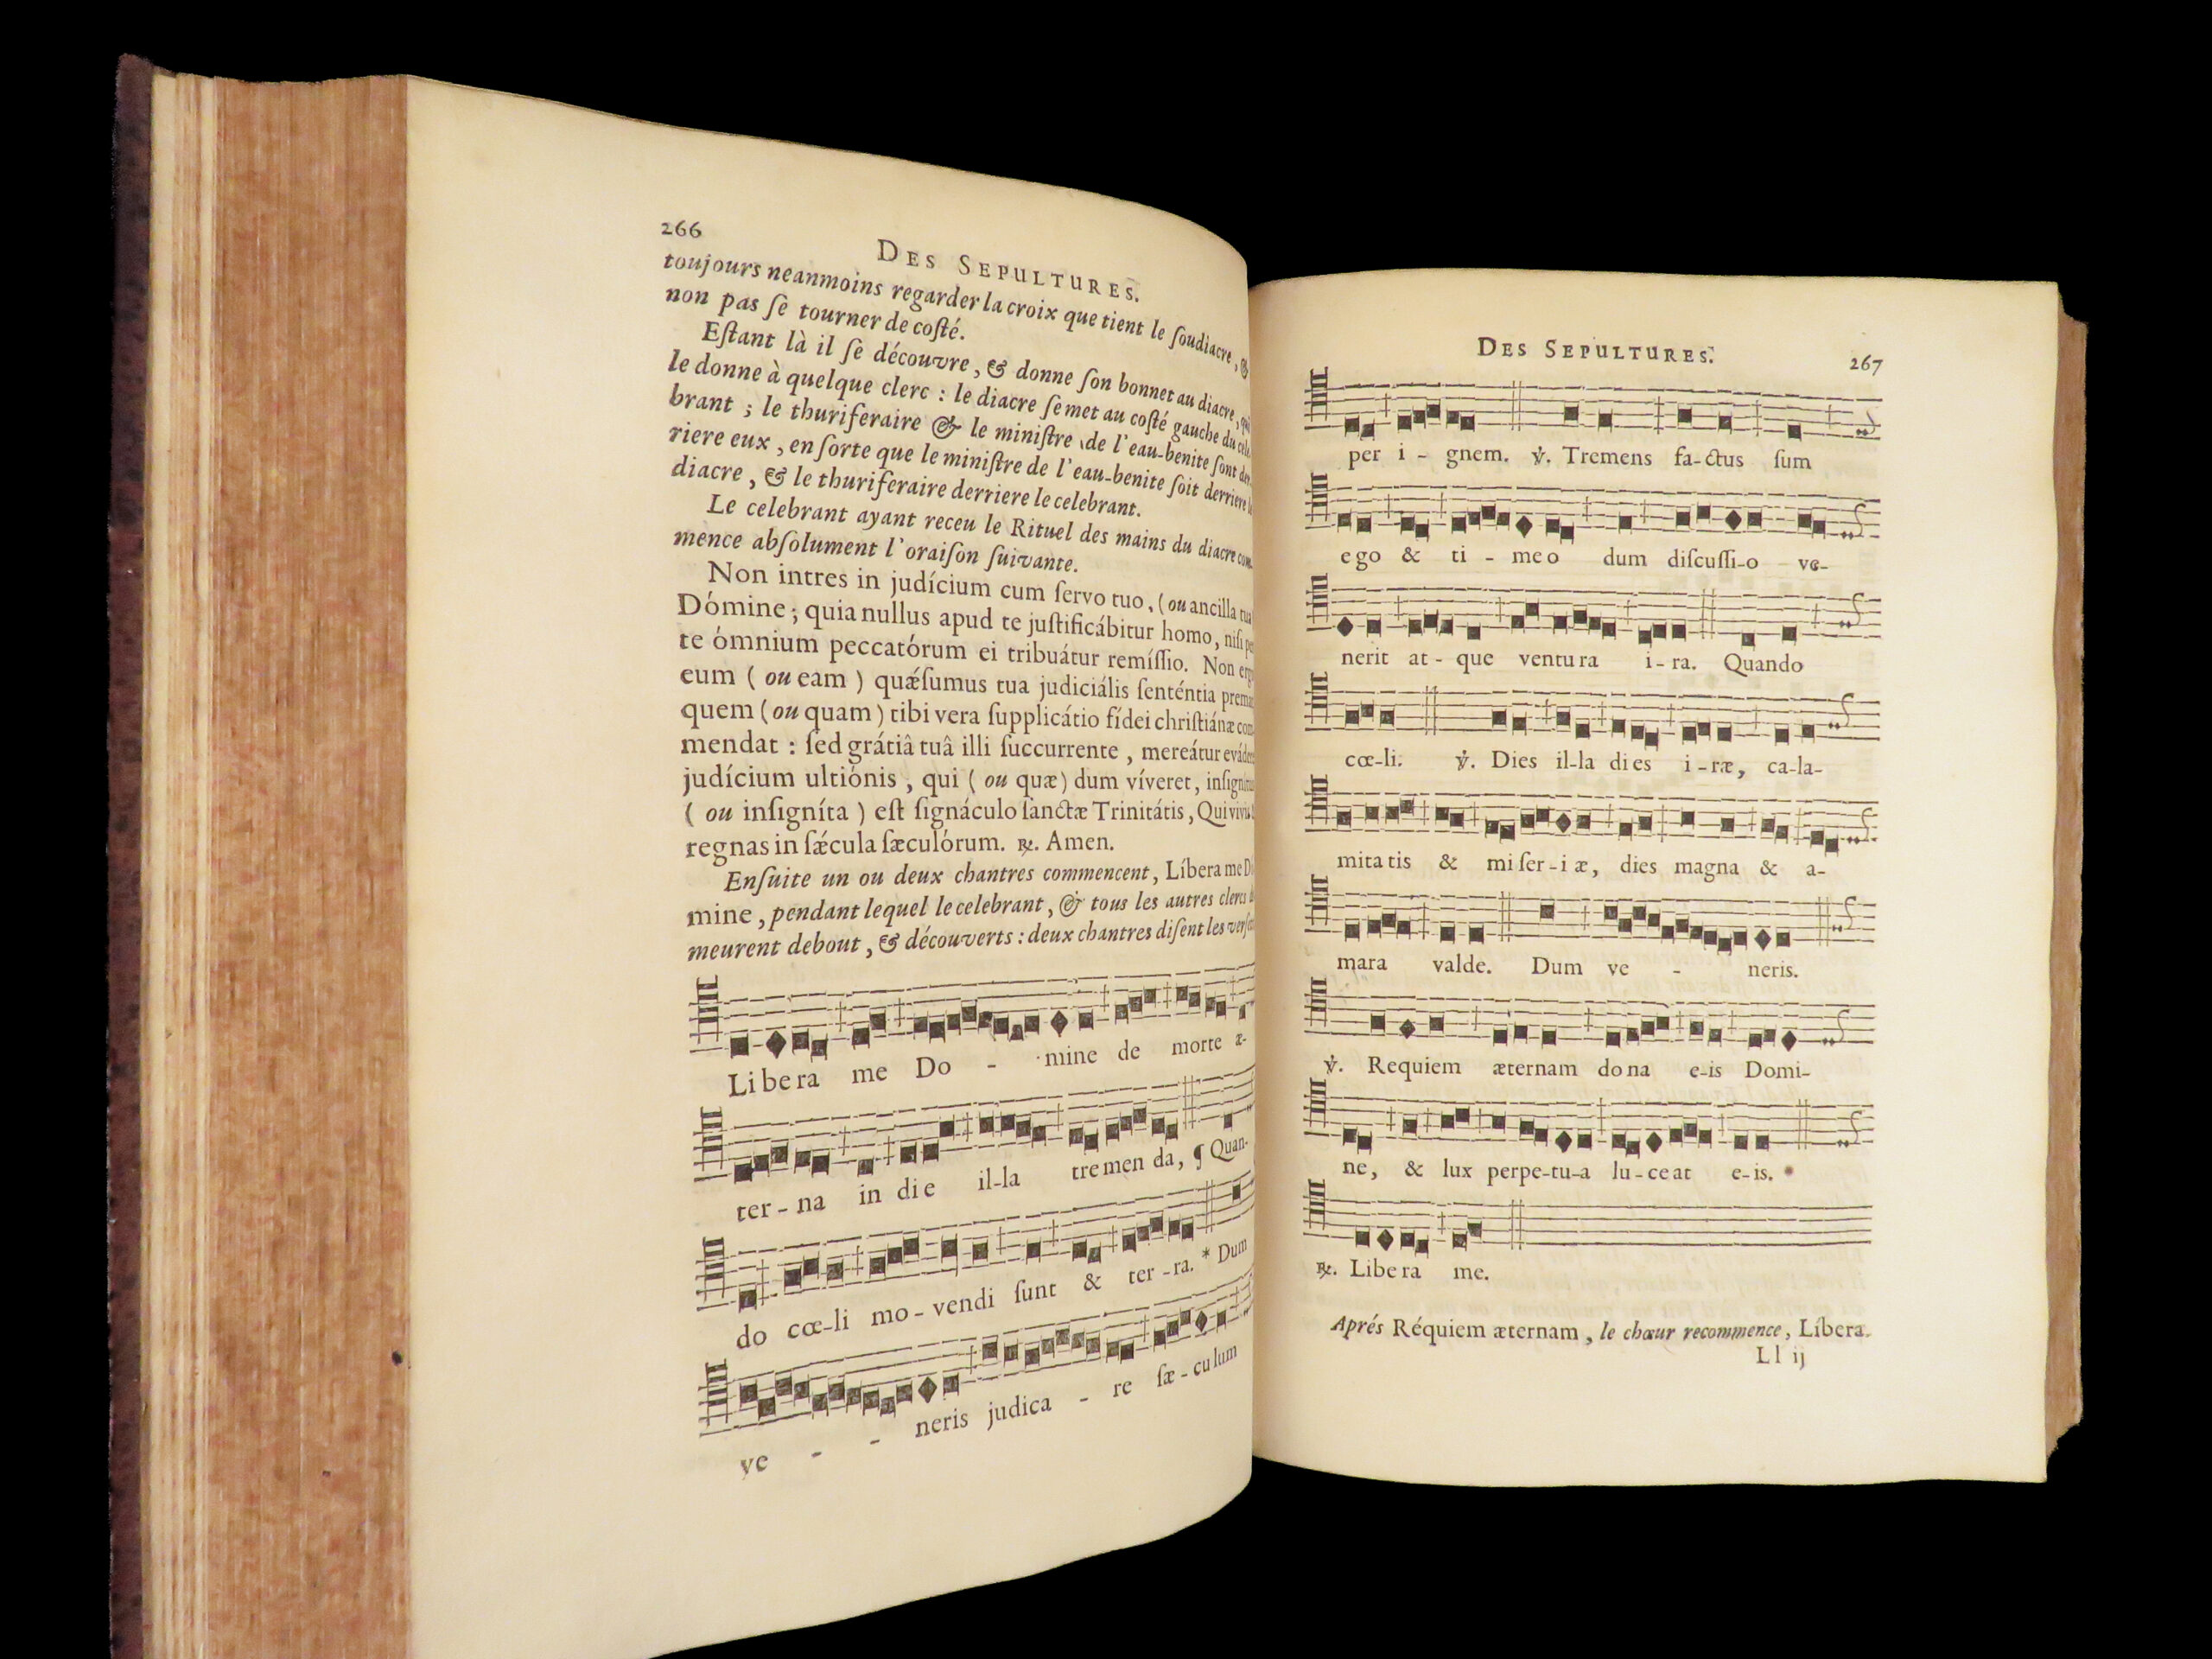 266
DES SEPULTURES.
toujours neanmoins regarder la croix que tient le ſoudiacre, &
non pas ſe tourner de coſté.
Eſtant là il ſe découvre, & donne ſon bonnet au diacre, qui
le donne à quelque clerc : le diacre ſe met au coſté gauche du cele-
brant ; le thuriferaire & le miniſtre de l'eau-benite ſont der-
riere eux, en ſorte que le miniſtre de l'eau-benite ſoit derriere le
diacre, & le thuriferaire derriere le celebrant.
Le celebrant ayant receu le Rituel des mains du diacre com-
mence abſolument l'oraiſon ſuivante.
Non intres in judícium cum ſervo tuo, (ou ancilla tua
Dómine ; quia nullus apud te juſtificábitur homo, niſi per
te ómnium peccatórum ei tribuátur remíſſio. Non
eum ( ou eam ) quǽſumus tua judiciális ſenténtia
quem (ou quam) tibi vera ſupplicátio fídei chriſtiánæ com
mendat : ſed grátiâ tuâ illi ſuccurrente, mereátur
judícium ultiónis, qui ( ou quæ) dum víveret,
( ou inſigníta ) eſt ſignáculo ſanctæ Trinitátis, Qui
regnas in ſǽcula ſæculórum. ℟. Amen.
Enſuite un ou deux chantres commencent, Líbera me
mine, pendant lequel le celebrant, & tous les autres clercs
meurent debout, & découverts : deux chantres diſent les
Libera me Do - mine de morte æ-
ter - na in die il-la tremenda, ¶ Quan-
do cœ-li mo-vendi ſunt & ter-ra. * Dum
ve - - neris judica - re ſæ-culum
DES SEPULTURES.
267
per i - gnem. ℣. Tremens fa-ctus ſum
ego & ti - meo dum diſcuſſi-o ve-
nerit at - que ventura i-ra. Quando
cœ-li. ℣. Dies il-la dies i-ræ, ca-la-
mitatis & miſer-iæ, dies magna & a-
mara valde. Dum ve - neris.
℣. Requiem æternam dona e-is Domi-
ne, & lux perpe-tu-a lu-ceat e-is.
℟. Libera me.
Aprés Réquiem æternam, le chœur recommence, Líbera.
Ll ij